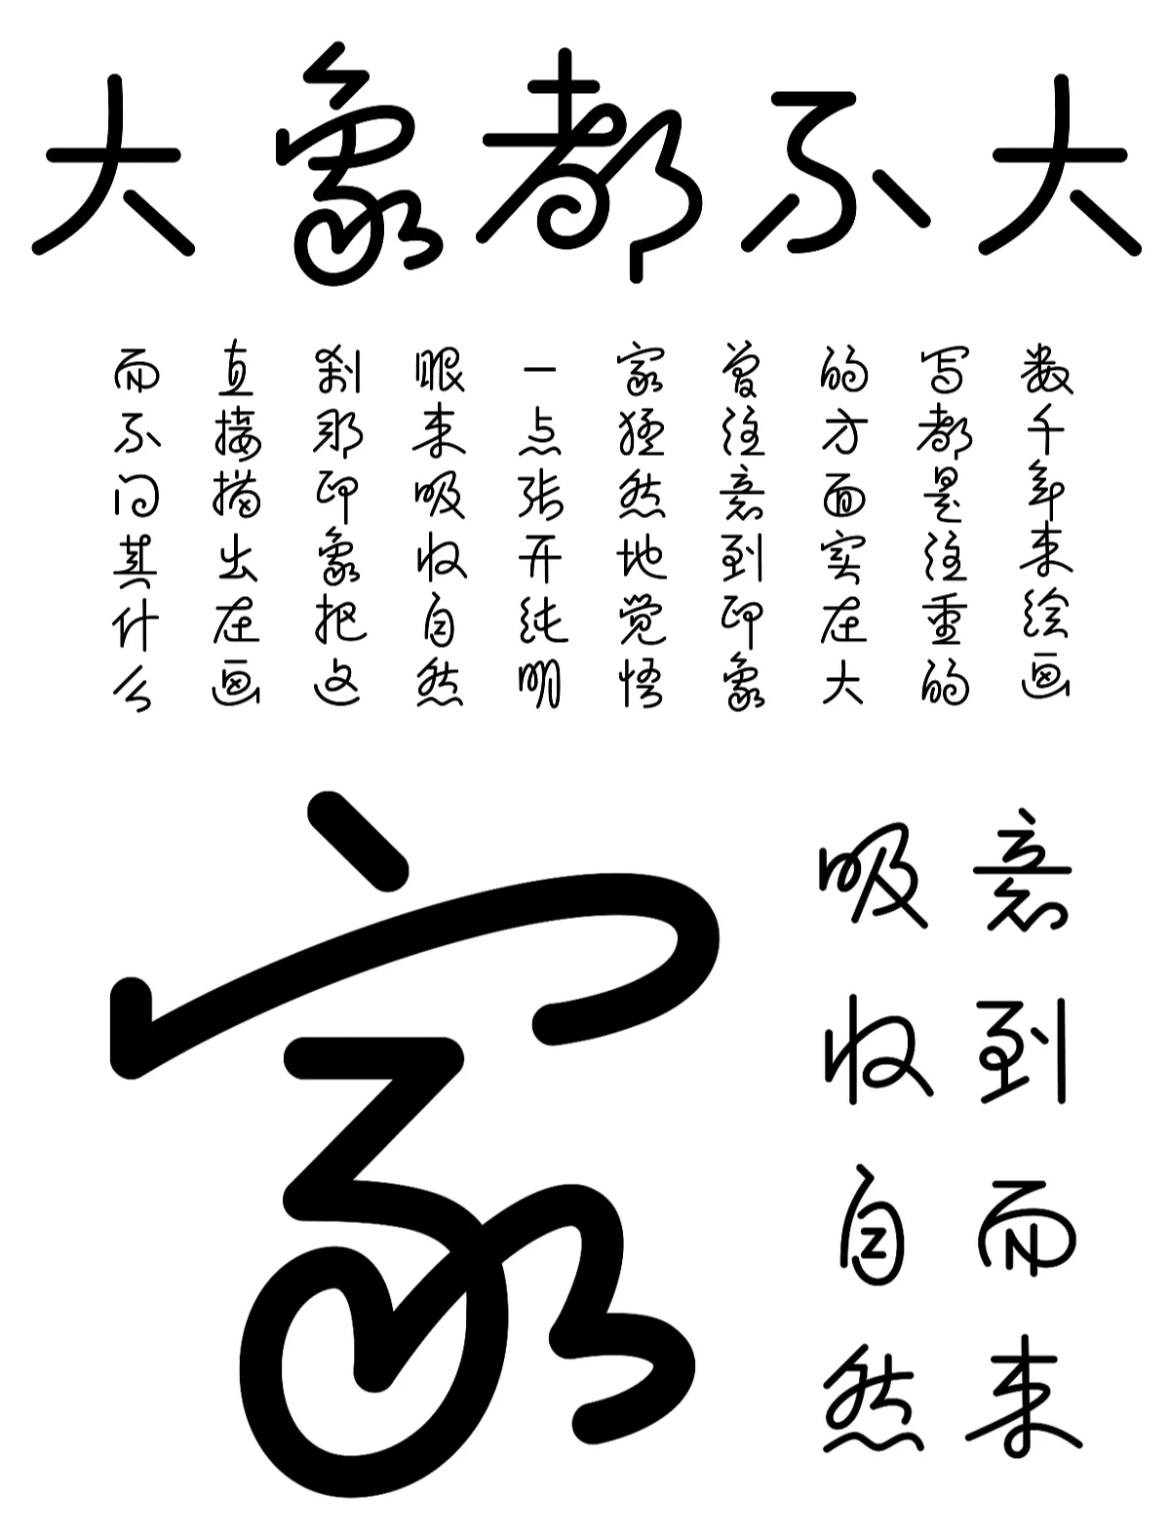 大象都不大
数千年来绘画
写都是注重的
的方面实在大
曾注意到印象
家猛然地觉悟
一点张开纯明
眼来吸收自然
刹那印象把这
直接描出在画
而不问其什么
家
意到而来
吸收自然